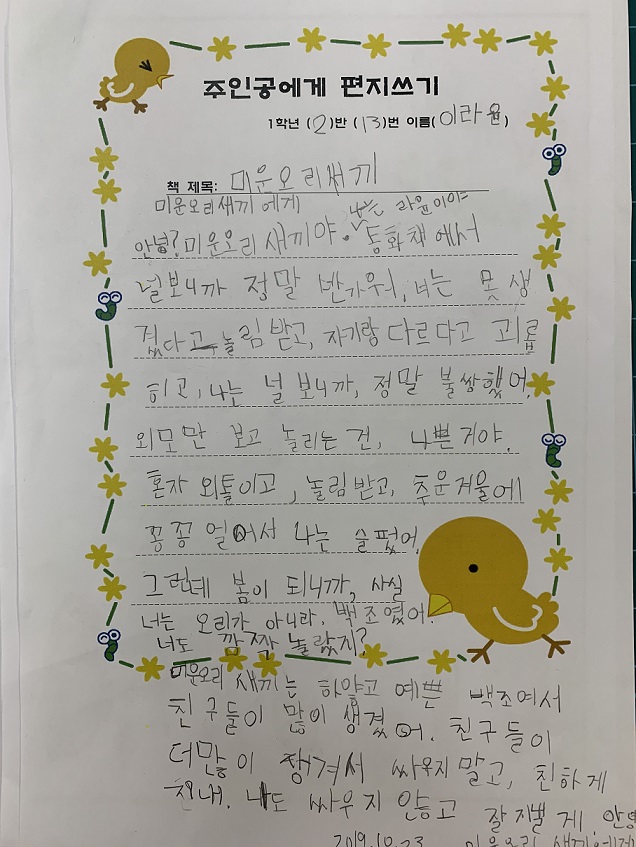 주인공에게 편지쓰기
1학년 (2)반 (13)번 이름(이라윤)
책 제목: 미운오리새끼
미운오리새끼에게 나는 라윤이야
안녕? 미운오리새끼야. 동화책에서
널보니까 정말 반가워, 너는 못생
겼다고 놀림받고, 자기랑 다르다고 괴롭
히고, 나는 널 보니까, 정말 불쌍했어.
외모만 보고 놀리는 건, 나쁜거야.
혼자 외톨이고, 놀림받고, 추운겨울에
꽁꽁 얼어서 나는 슬펐어.
그런데 봄이 되니까, 사실
너는 오리가 아니라, 백조였어.
너도 깜짝 놀랐지?
미운오리 새끼는 하얗고 예쁜 백조여서
친구들이 많이 생겼어. 친구들이
더많이 생겨서 싸우지말고, 친하게
지내. 나도 싸우지 않고 잘지낼게. 안녕
2019.10.23 미운오리 새끼에게